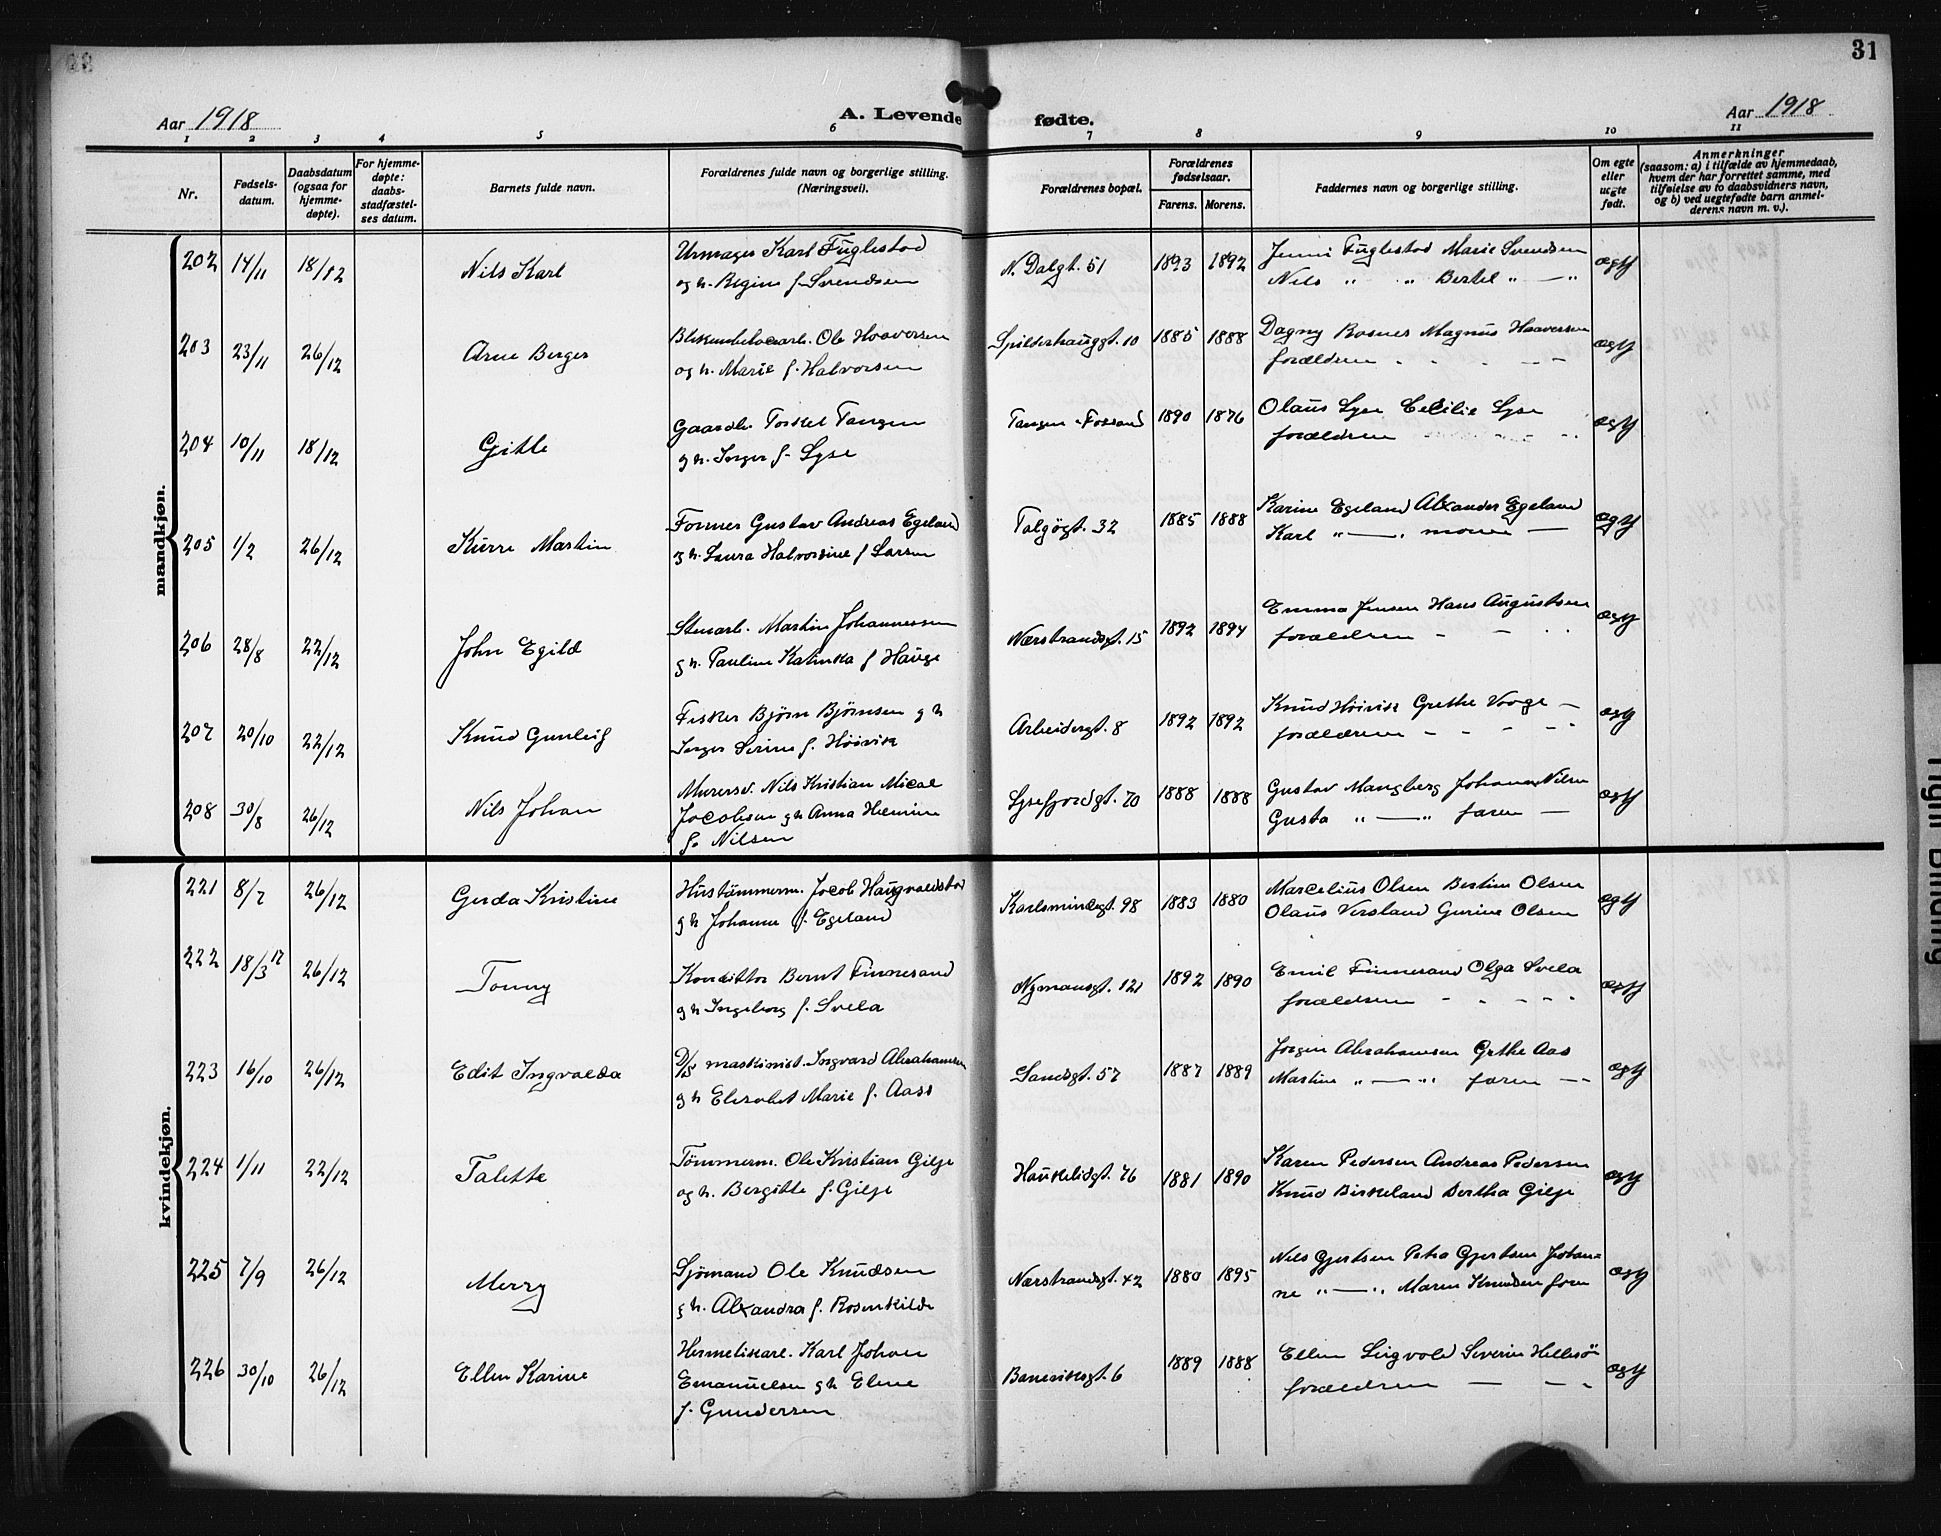 31
Aar 1918
A. Levende fødte.
Aar 1918
1 2 3 4 5 6 7 8 9 10 11
Nr.
Fødsels-
datum.
Daabsdatum
(ogsaa for
hjemme-
døpte).
For hjemme-
døpte:
daabs-
stadfæstel-
ses datum.
Barnets fulde navn.
Forældrenes fulde navn og borgerlige stilling.
(Næringsvei).
Forældrenes bopæl.
Forældrenes
fødselsaar.
Farens. Morens.
Faddernes navn og borgerlige stilling.
Om egte
eller
uegte
født.
Anmerkninger
(saasom: a) i tilfælde av hjemmedaab,
hvem der har forrettet samme, med
tilføielse av to daabsvidners navn,
og b) ved uegtefødte barn anmel-
derens navn m. v.).
mandkjøn.
202 14/11 18/12 Nils Karl
Urmager Karl Fuglestad
og h. Regine f. Svendsen
N. Dalgt. 51 1893 1892
Jenni Fuglestad Marie Svendsen
Nils " " Bertel " — "
egt
203 23/11 26/12 Arne Berger
Ole Haaversen
og h. Marie f. Halvorsen
Spilderhauggt. 10 1885 1888
Dagny Rosnes Magnus Haaversen
forældrene
egt
204 10/11 18/12 Gitle
Gaardb. Torkel Tangen
og h. Inger f. Lyse
Tangen Fossand 1890 1876
Olaus Lyse Cecilie Lyse
forældrene
egt
205 1/2 26/12 Kurre Martin
Former Gustav Andreas Egeland
og h. Laura Halvorsine f. Larsen
Talgøgt. 32 1885 1888
Karine Egeland Alexander Egeland
Karl " — " moren —
egt
206 28/8 22/12 John Egild
Stenarb. Martin Johannessen
og h. Pauline Katinka f. Hauge
Nærstrandsgt. 15 1892 1894
Emma Jensen Hans Augustsen
forældrene
egt
207 20/10 22/12 Knud Gunleif
Fisker Bjørn Bjørnsen og h
Inger Serine f. Høivik
Arbeidergt. 8 1892 1892
Knud Høivik Grethe Vaage —
forældrene
egt
208 30/8 26/12 Nils Johan
Murersv. Nils Kristian Mical
Jacobsen og h Anna Helmine
f. Nilsen
Lysefjordgt. 20 1888 1888
Gustav Mangberg Johanne Nilsen
Gusta " — " faren —
egt
kvindekjøn.
221 8/7 26/12 Gerda Kristine
Hustømmerm. Jacob Haugvaldstad
og h Johanne f. Egeland
Karlsmindegt. 98 1883 1880
Marcelius Olsen Bertine Olsen
Olaus Versland Gurine Olsen
egt
222 18/3 17 26/12 Tonny
Konditor Bernt Finnesand
og h Ingeborg f. Svela
Nymansgt. 121 1892 1890
Emil Finnesand Olga Svela
forældrene
egt
223 16/10 26/12 Edit Ingvalda
D/S maskinist. Ingvard Abrahamsen
og h Elisabet Marie f. Aass
Sandsgt. 57 1887 1889
Jørgen Abrahamsen Grthe Aas
Martine " — " faren —
egt
224 1/11 22/12 Talette
Tømmerm. Ole Kristian Gilje
og h. Bergitte f. Gilje
Haukelidgt. 76 1881 1890
Karen Pedersen Andreas Pedersen
Knud Birkeland Bertha Gilje
egt
225 7/9 26/12 Merry
Sjømand Ole Knudsen
og h. Alexandra f. Rosenkilde
Nærstrandsgt. 42 1880 1895
Nils Gjertsen Petra Gjertsen Johan=
ne " — " Maren Knudsen faren
egt
226 30/10 26/12 Ellen Karine
Hermetikarb. Karl Johan
Emanuelsen og h Elene
f. Gundersen
Banevikgt. 6 1889 1888
Ellen Sigvald Severin Hellesø
forældrene — — -
egt